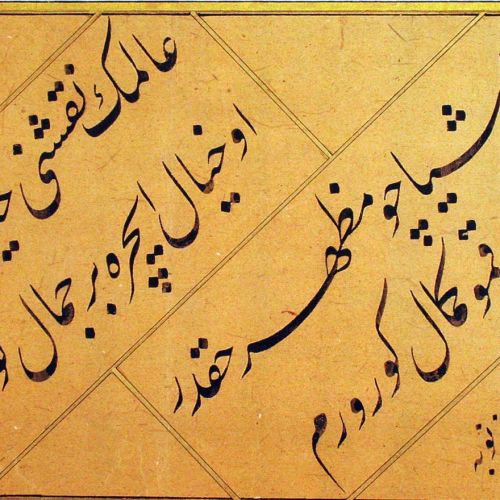 عالمك نقشنی
او خیال ایچره بر جمال
چو مظهر حقدر
قمو كمال كورورم